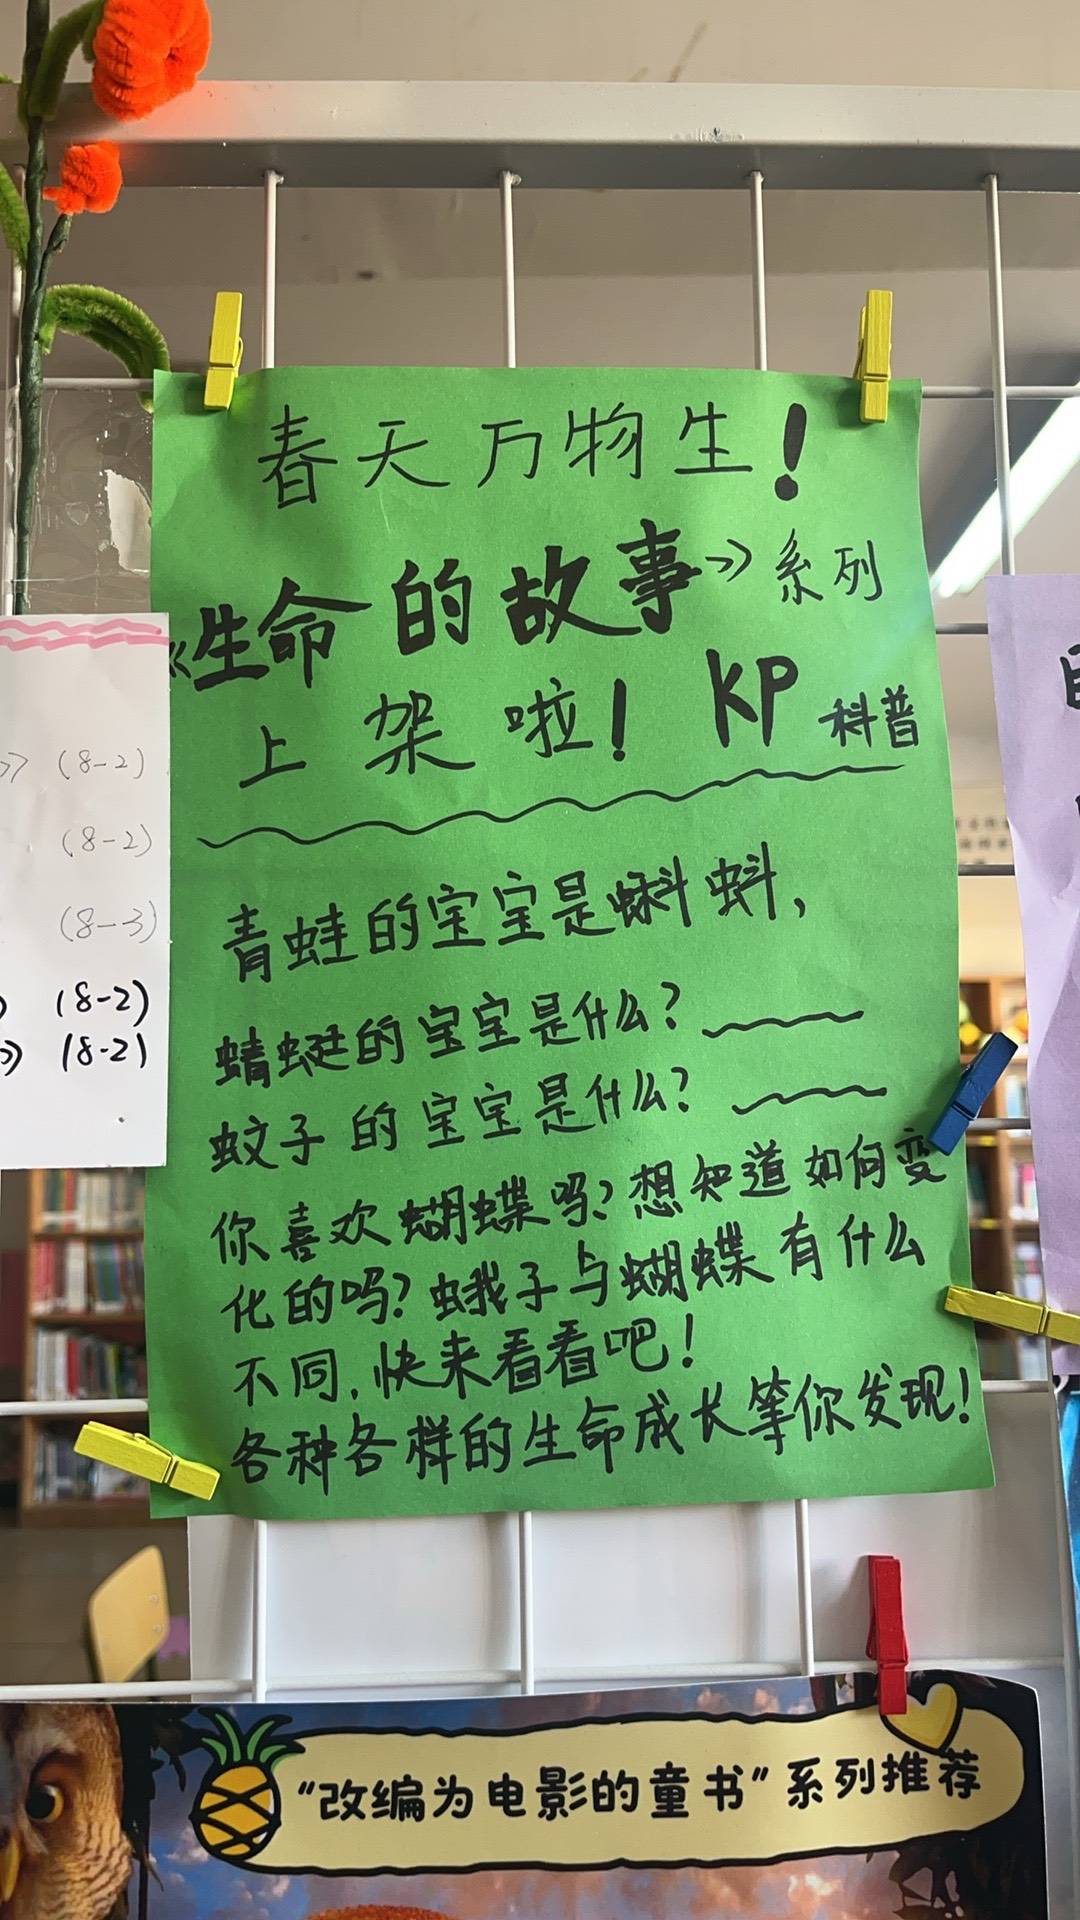 春天万物生！
《生命的故事》系列
上架啦！ KP 科普
青蛙的宝宝是蝌蚪，
蜻蜓的宝宝是什么？
蚊子的宝宝是什么？
你喜欢蝴蝶吗？想知道如何变
化的吗？蛾子与蝴蝶有什么
不同，快来看看吧！
各种各样的生命成长等你发现！
》 (8-2)
(8-2)
(8-3)
(8-2)
》 (8-2)
“改编为电影的童书”系列推荐